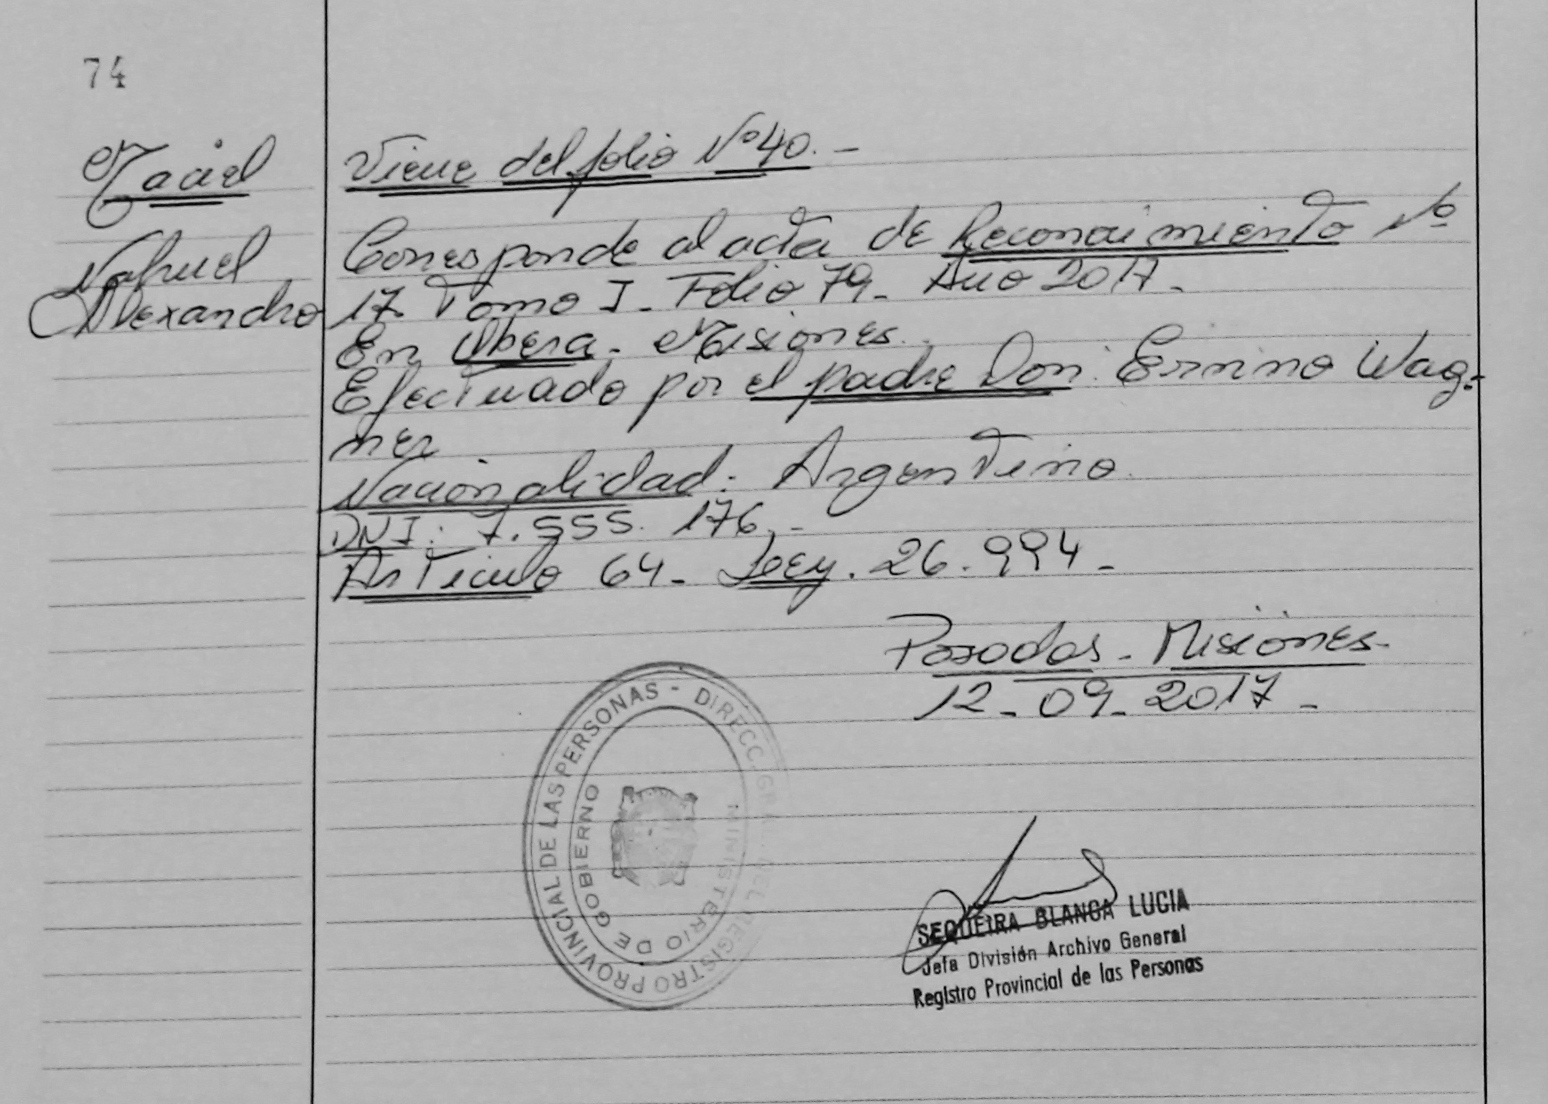 74
Maciel
Nahuel
Alexandro
Viene del folio Nº 40.-
Corresponde al acta de Reconocimiento Nº
17. Tomo I- Folio 79- Año 2017-
En Obera- Misiones.
Efectuado por el padre Don: Ermino Wag-
ner
Nacionalidad: Argentino.
DNI: 7.555.176.-
Articulo 64- Ley. 26.994-
Posadas- Misiones-
12-09-2017-
DIRECC. GRAL. DEL REGISTRO PROVINCIAL DE LAS PERSONAS -
MINISTERIO DE GOBIERNO
SEQUEIRA BLANCA LUCIA
Jefa División Archivo General
Registro Provincial de las Personas